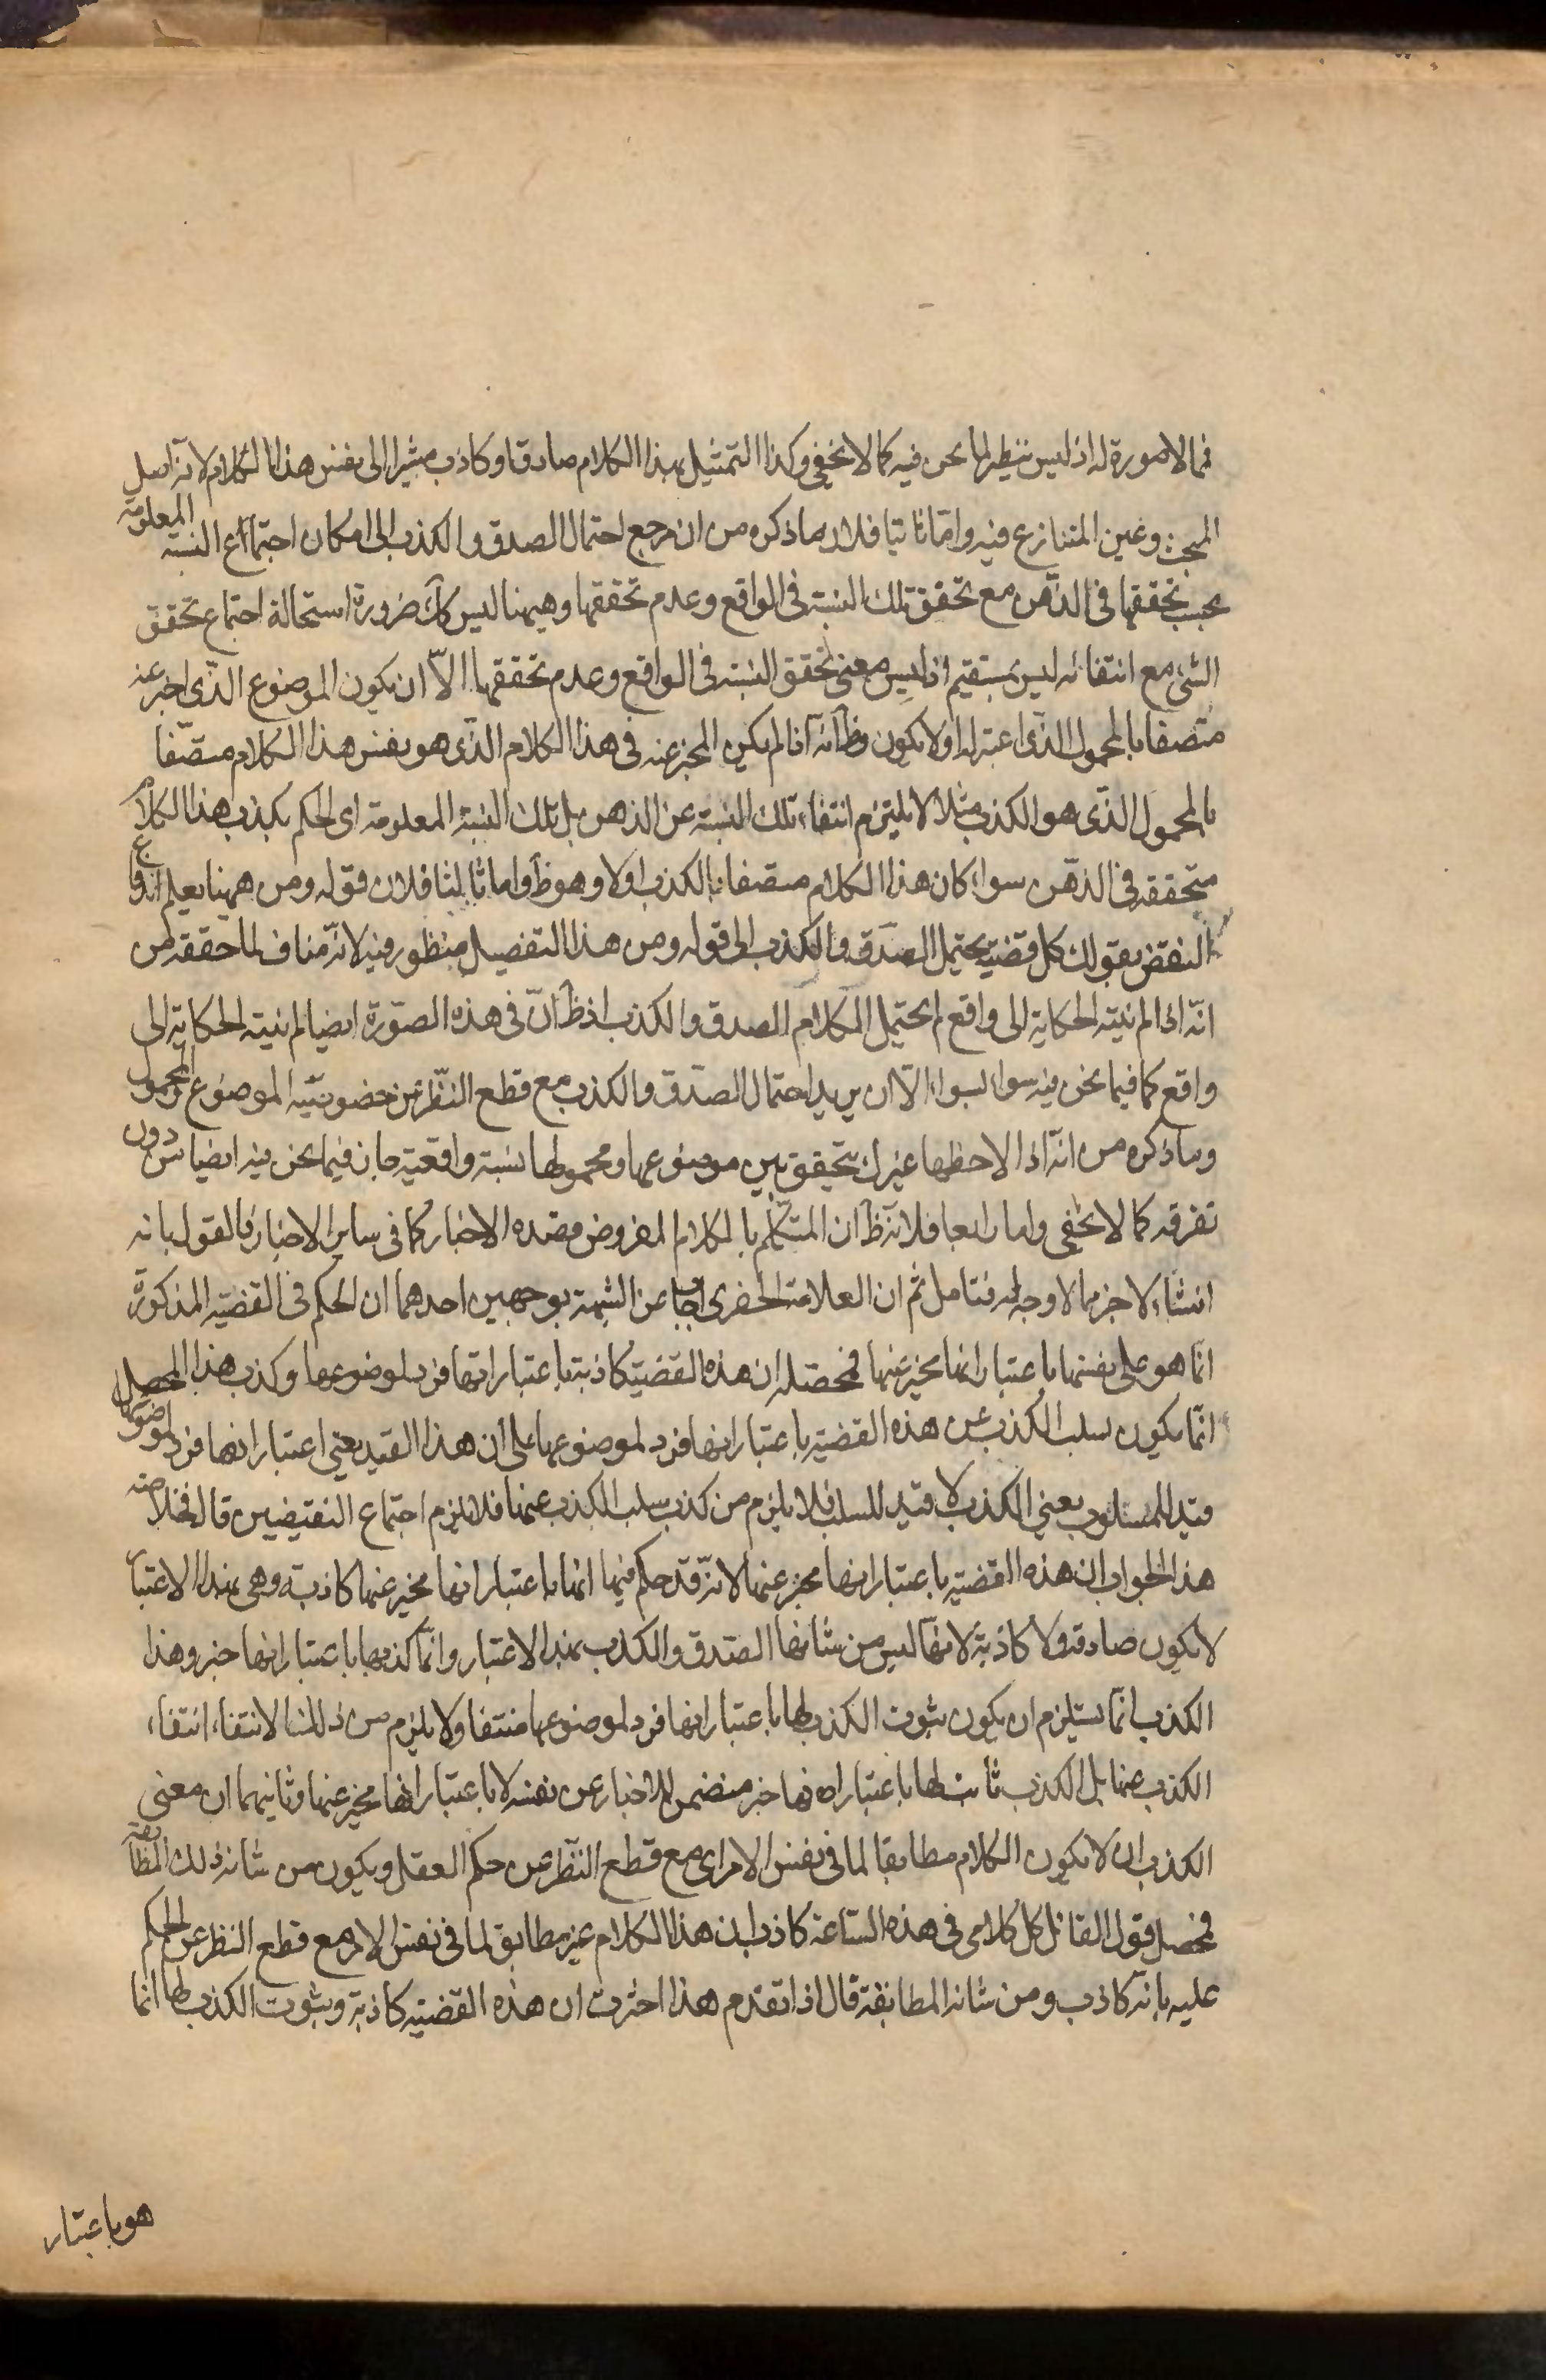 فما لا صورة له اذ ليس نظيرا لما نحن فيه كما لا يخفى وكذا التمثيل بهذا الكلام صادق او كاذب مشيرا الى نفس هذا الكلام لانه اصل
المبحث وعين المتنازع فيه واما ثانيا فلان ما ذكره من ان مرجع احتمال الصدق والكذب الى امكان اجتماع النسبة المعلومة
بحسب تحققها في الذهن مع تحقق تلك النسبة في الواقع وعدم تحققها وهيهنا ليس كك ضرورة استحالة اجتماع تحقق
الشئ مع انتفائه ليس بمستقيم اذ ليس معنى تحقق النسبة في الواقع وعدم تحققها الا ان يكون الموضوع الذي اخبر عنه
متصفا بالمحمول الذي اعتبر له او لا يكون وظ انه اذا لم يكن المخبر عنه في هذا الكلام الذي هو نفس هذا الكلام متصفا
بالمحمول الذي هو الكذب مثلا لا يلتزم انتفاء تلك النسبة عن الذهن بل تلك النسبة المعلومة اى الحكم بكذب هذا الكلام
متحققة في الذهن سواء كان هذا الكلام متصفا بالكذب اولا وهو ظ واما ثالثا فلان قوله ومن ههنا يعلم اندفاع
النقض بقولك كل قضية يحتمل الصدق والكذب الى قوله ومن هذا التفصيل منظور فيه لانه مناف لما حققه من
انه اذا لم ينته الحكاية الى واقع لم يحتمل الكلام الصدق والكذب اذ ظ ان في هذه الصورة ايضا لم ينته الحكاية الى
واقع كما فيما نحن فيه سواء بسواء الا ان يريد احتمال الصدق والكذب مع قطع النظر عن خصوصية الموضوع والمحمول
وما ذكره من انه اذا لاحظها غيرك تحقق بين موضوعها ومحمولها نسبة واقعية جار فيما نحن فيه ايضا من دون
تفرقة كما لا يخفى واما رابعا فلانه ظ ان المتكلم بالكلام المفروض قصده الاخبار كما في ساير الاخبار فالقول بانه
انشاء لا خبر مما لا وجه له فتامل ثم ان العلامة الخفرى اجاب عن الشبهة بوجهين احدهما ان الحكم في القضية المذكورة
انما هو على نفسها باعتبار انها مخبر عنها فمحصله ان هذه القضية كاذبة باعتبار انها فرد لموضوعها وكذب هذا المحصل
انما يكون بسلب الكذب عن هذه القضية باعتبار انها فرد لموضوعها على ان هذا القيد يعنى اعتبار انها فرد لموضوعها
قيد للمسلوب يعني الكذب لا قيد للسلب فلا يلزم من كذب سلب الكذب عنها فلا يلزم اجتماع النقيضين قال فخلاصة
هذا الجواب ان هذه القضية باعتبار انها مخبر عنها لانه قد حكم فيها انها باعتبار انها مخبر عنها كاذبة وهى بهذا الاعتبار
لا يكون صادقة ولا كاذبة لانها ليس من شانها الصدق والكذب بهذا الاعتبار وانما كذبها باعتبار انها خبر وهذا
الكذب انما يستلزم ان يكون ثبوت الكذب لها باعتبار انها فرد لموضوعها منتفا ولا يلزم من ذلك الانتفاء انتفاء
الكذب عنها بل الكذب ثابت لها باعتبار انها خبر متضمن للاخبار عن نفسه لا باعتبار انها مخبر عنها وثانيهما ان معنى
الكذب ان لا يكون الكلام مطابقا لما في نفس الامر اى مع قطع النظر عن حكم العقل ويكون من شانه ذلك المطابقة
فمحصل قول القائل كل كلامى في هذه الساعة كاذب ان هذا الكلام غير مطابق لما في نفس الامر مع قطع النظر عن الحكم
عليه بانه كاذب ومن شانه المطابقة قال اذا تقدم هذا اخترت ان هذه القضية كاذبة وثبوت الكذب لها انما
هو باعتبار